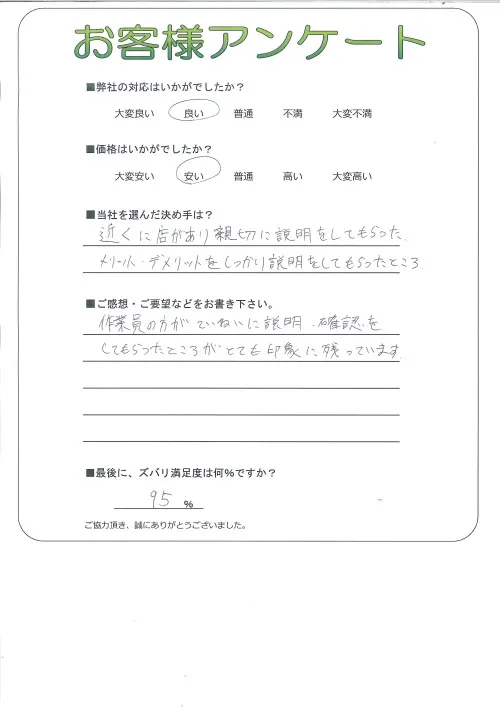 お客様アンケート
■弊社の対応はいかがでしたか？
大変良い 良い 普通 不満 大変不満
■価格はいかがでしたか？
大変安い 安い 普通 高い 大変高い
■当社を選んだ決め手は？
近くに店があり親切に説明をしてもらった。
メリット・デメリットをしっかり説明をしてもらったところ
■ご感想・ご要望などをお書き下さい。
作業員の方がていねいに説明、確認を
してもらったところがとても印象に残っています
■最後に、ズバリ満足度は何%ですか？
95 %
ご協力頂き、誠にありがとうございました。